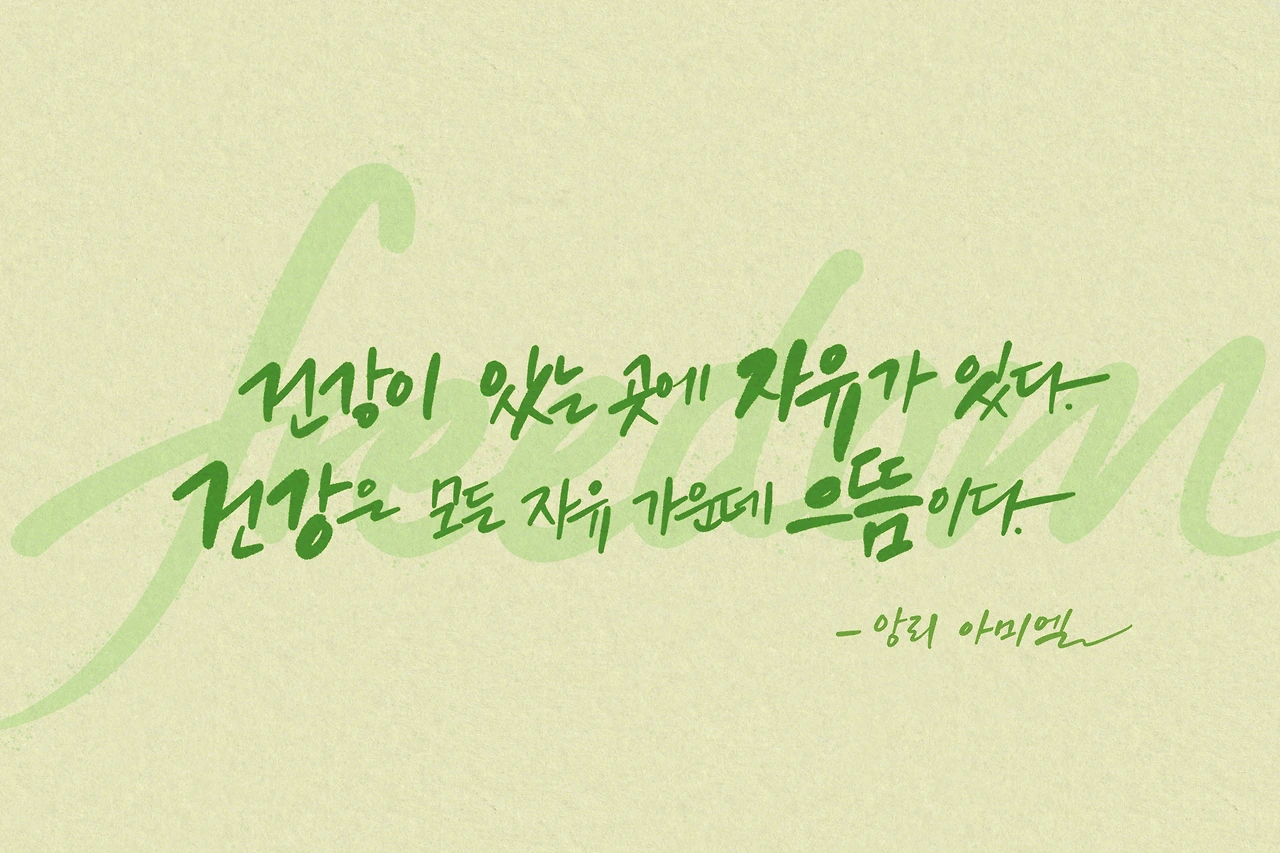 freedom
건강이 있는 곳에 자유가 있다.
건강은 모든 자유 가운데 으뜸이다.
- 앙리 아미엘